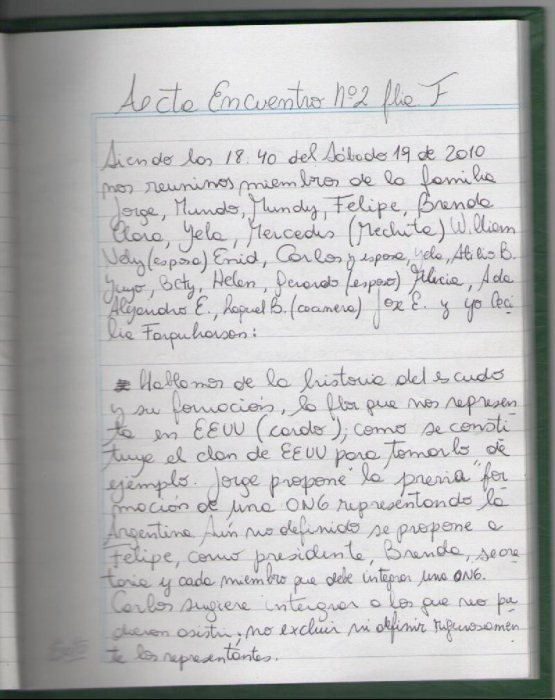 Acta Encuentro Nº2 flia F
Siendo las 18.40 del Sábado 19 de 2010
nos reunimos miembros de la familia
Jorge, Mundo, Mundy, Felipe, Brenda
Clara, Yela, Mercedes (Mechita) William
(esposa) Enid, Carlos y esposa, Yela, Atilio B.
Yuyo, Bety, Helen, Gerardo (esposo) Alicia, Ada
Alejandro E., Raquel B. (cocinera) Jox E. y yo Ceci
lia Farquharson:
Hablamos de la historia del escudo
y su formación, la flor que nos represen
ta en EEUU (cardo), como se consti
tuye el clan de EEUU para tomarlo de
ejemplo. Jorge propone "la previa" for
mación de una ONG representando la
Argentina Aún no definido se propone a
Felipe, como presidente, Brenda, secre
taria y cada miembro que debe integrar una ONG.
Carlos sugiere integrar a los que no pu
dieron asistir, no excluir ni definir rigurosamen
te los representantes.